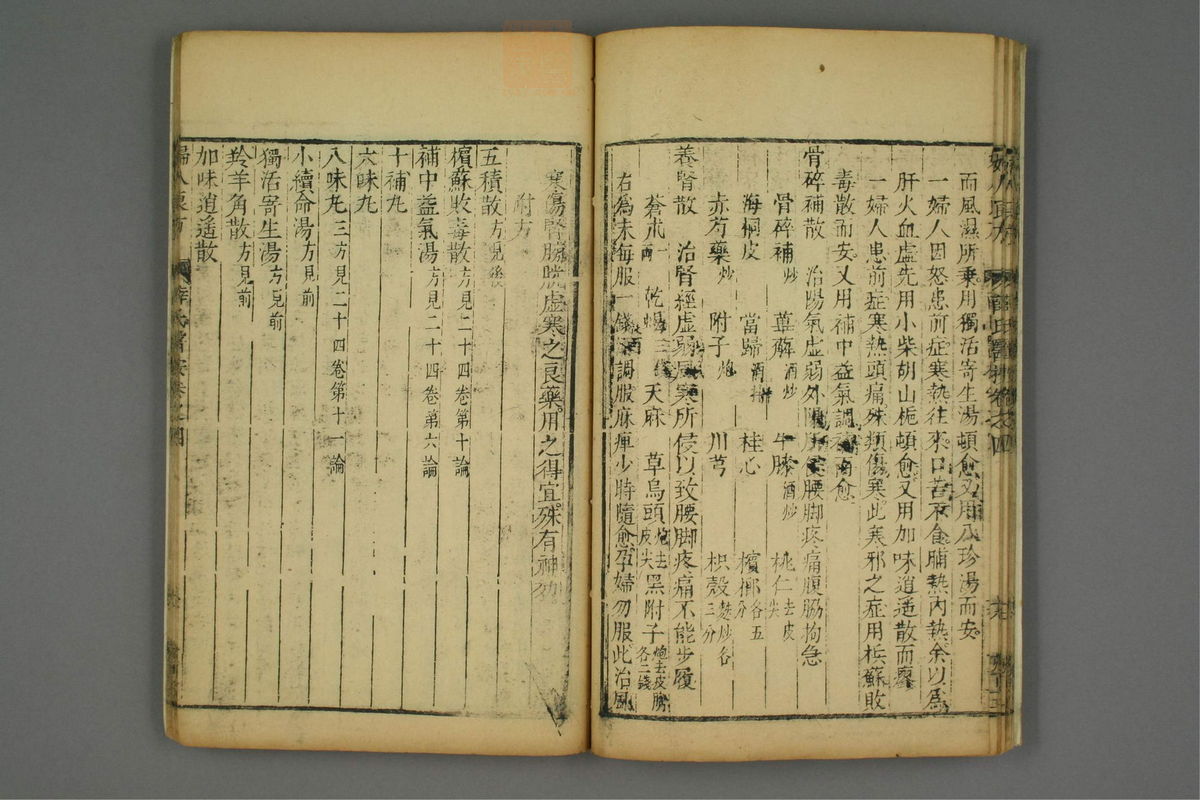 而風濕所乗用獨活寄生湯頓愈又用八珍湯而安
一婦人因怒患前症寒熱往來口苦不食脯熱内熱余以爲
肝火血虛先用小柴胡山栀頓愈又用加味逍遥散而廖
一婦人患前症寒熱頭痛殊類傷寒此寒邪之症用梹蘇敗
毒散而安又用補中益氣調而愈
骨碎補散 治陽氣虚弱外腰脚疼痛腹脇拘急
骨碎補炒 萆薢酒炒 牛膝酒炒 桃仁去皮尖
海桐皮 當歸酒拌 桂心 檳榔各五分
赤芍藥炒 附子炮 川芎 枳殻麩炒各三分
養腎散 治腎經虚弱風寒所侵以致腰脚疼痛不能步履
蒼朮一兩 乾蝎三錢 天麻 草烏頭炮去皮尖 黑附子炮去皮臍各二錢
右爲末每服一錢酒調服麻痺少時隨愈孕婦勿服此治風
寒傷腎膀胱虚寒之良藥用之得宜殊有神効
附方
五積散方見後
檳蘇敗毒散方見二十四卷第十論
補中益氣湯方見二十四卷第六論
十補丸
六味丸
八味丸三方見二十四卷第十一論
小續命湯方見前
獨活寄生湯方見前
羚羊角散方見前
加味逍遥散
婦人良方 薛氏醫按卷之四